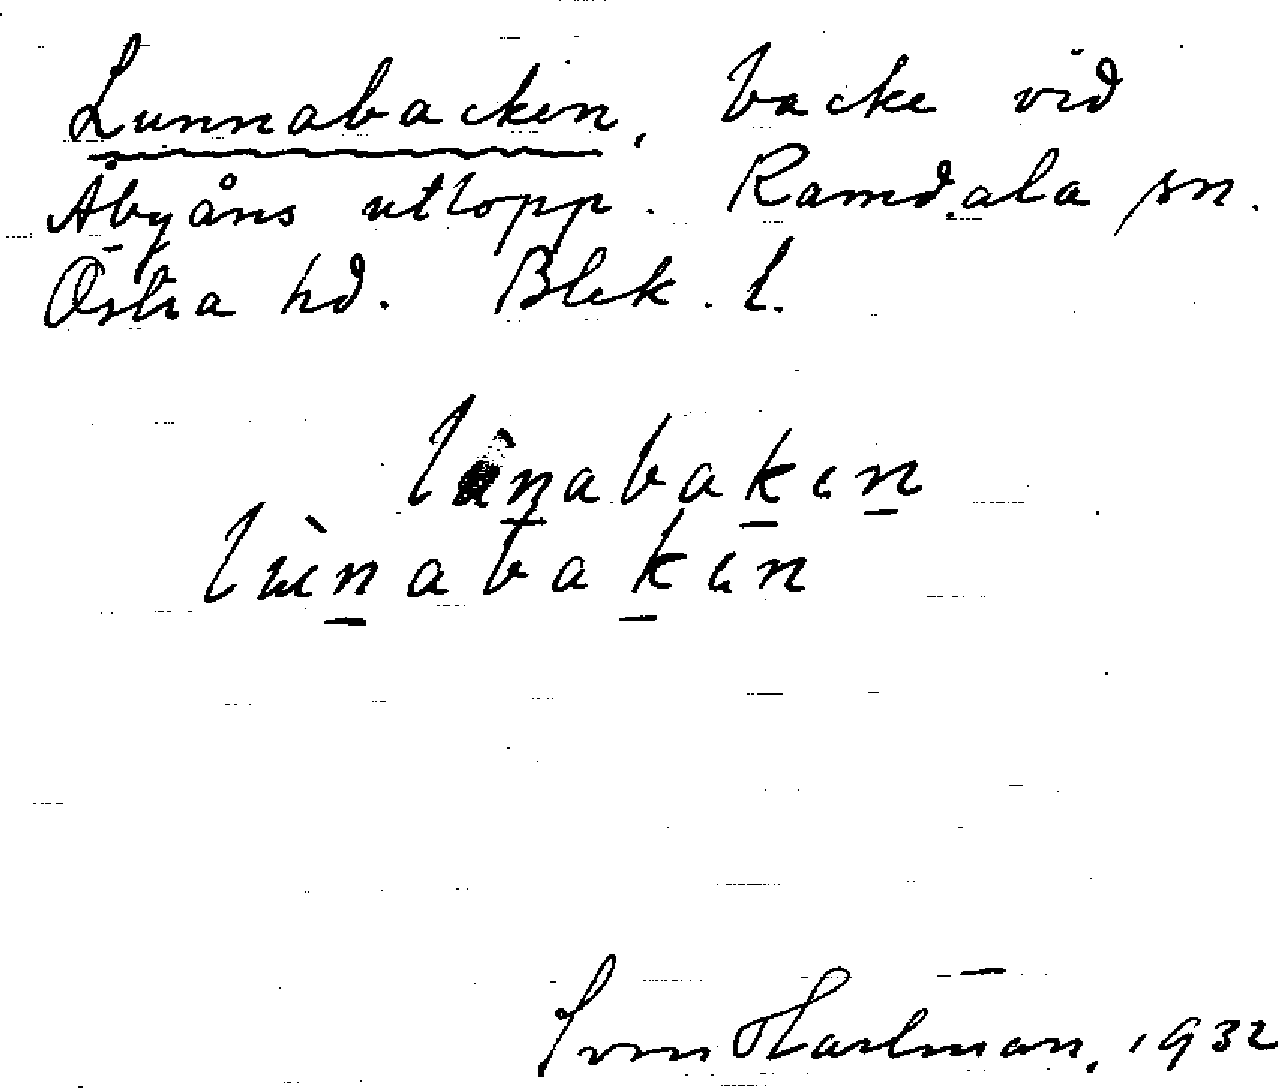 Lunnabacken, backe vid
Åbyåns utlopp. Ramdala sn.
Östra hd. Blek. l.
lùnabakın
lùnabakın
Sven Hartman, 1932